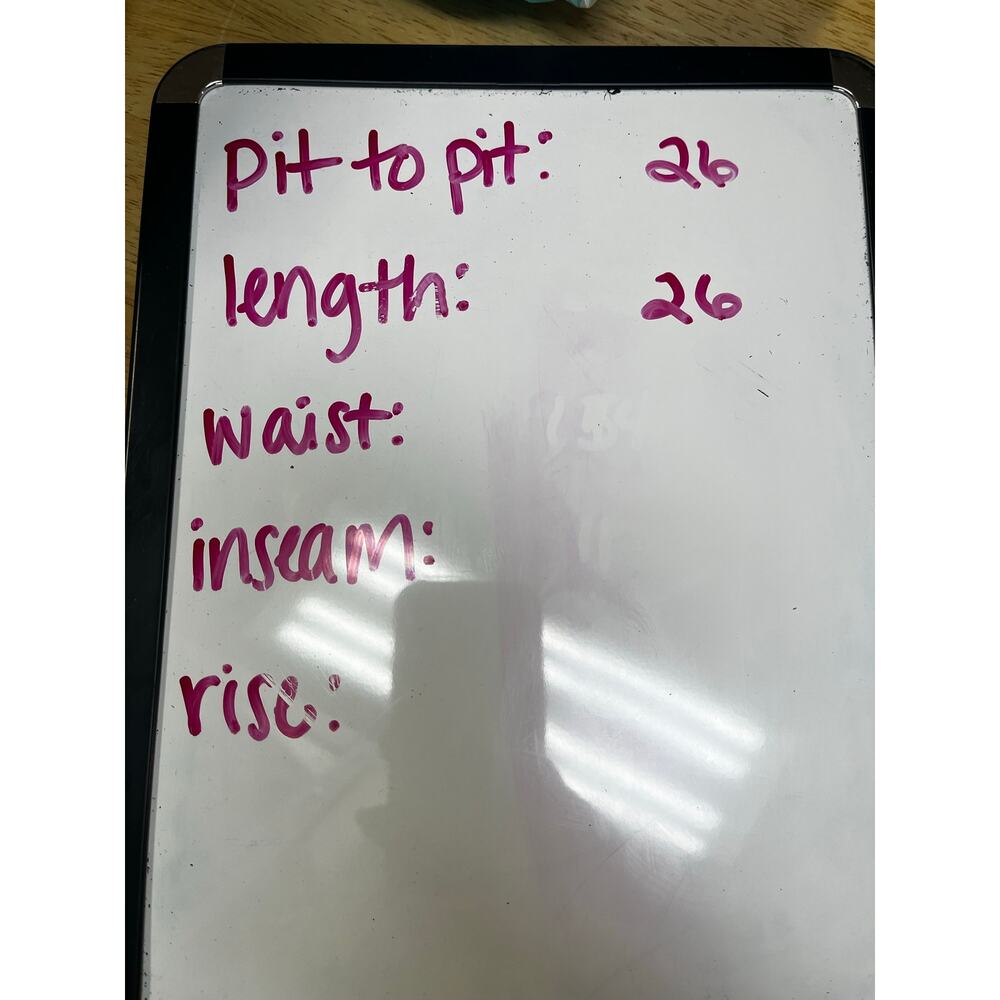 pit to pit: 26
length: 26
waist:
inseam:
rise: